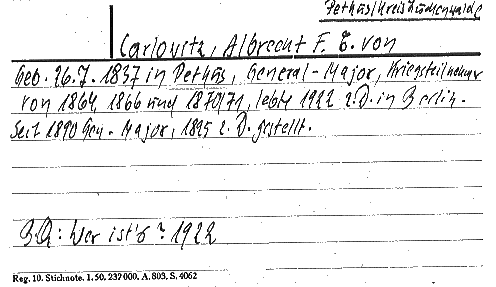 Pethus/Kreis Luckenwalde
Carlowitz, Albrecht F. E. von
Geb. 26.7. 1837 in Pethus, General-Major, Kriegsteilnehmer
von 1864 1866 und 1870/71, lebte 1922 z.D. in Berlin.
Seit 1890 Gen.-Major, 1895 z. D. gestellt.
B.Q: Wer ist's? 1922
Reg. 10. Stichnote. 1. 50. 232 000. A. 803. S. 4062